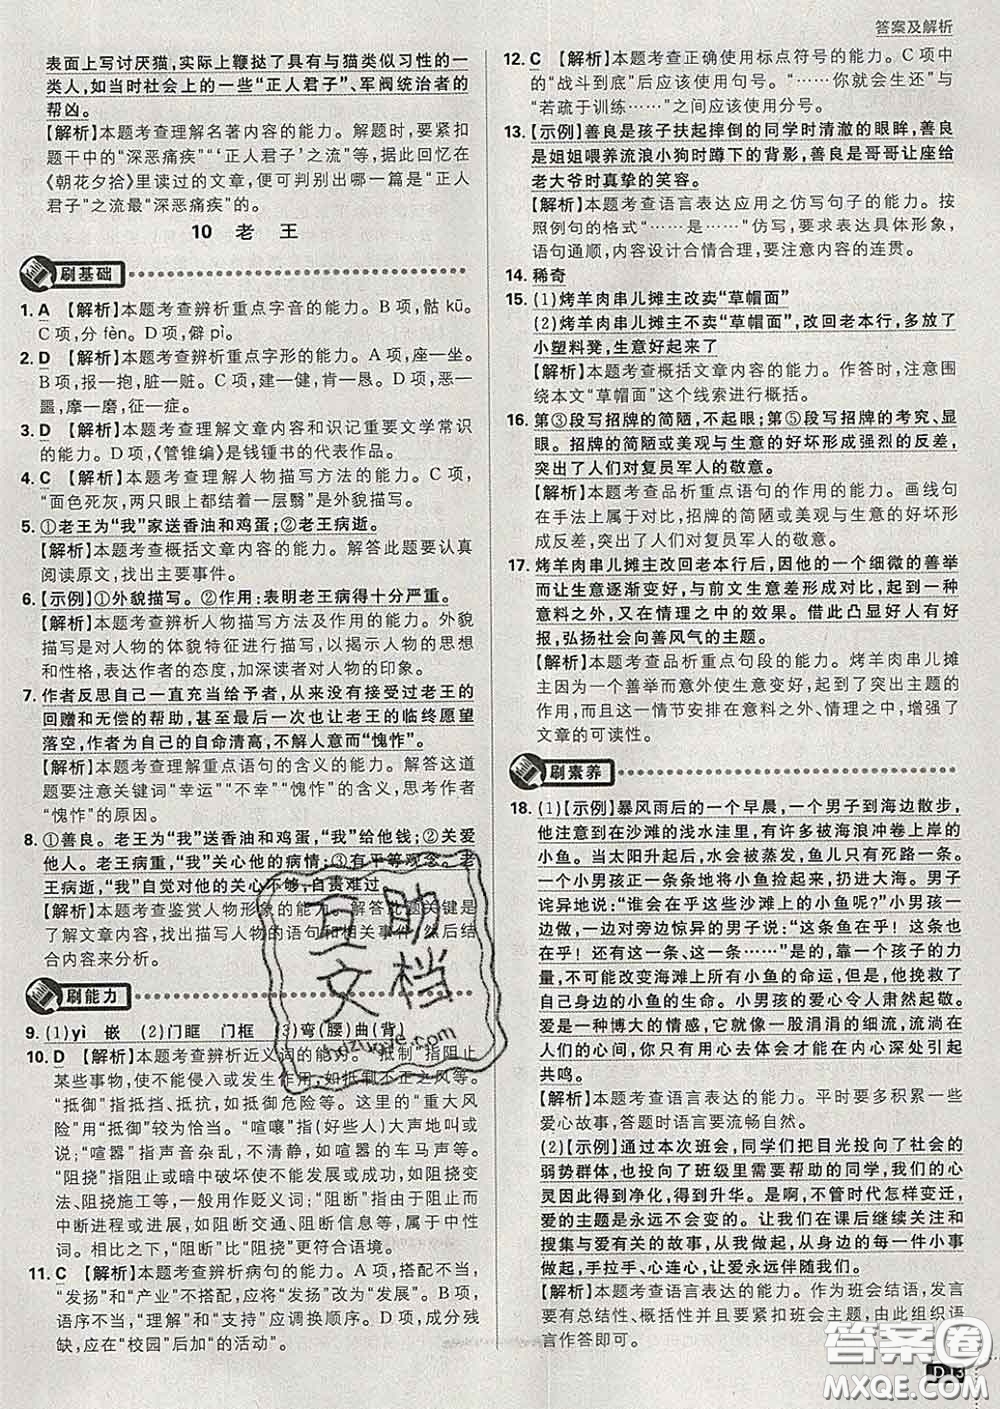 答案及解析
表面上写讨厌猫,实际上鞭挞了具有与猫类似习性的一
类人,如当时社会上的一些“正人君子”、军阀统治者的
帮凶。
【解析】本题考查理解名著内容的能力。解题时,要紧扣
题干中的“深恶痛疾”“‘正人君子’之流”等,据此回忆在
《朝花夕拾》里读过的文章,便可判别出哪一篇是“正人
君子”之流最“深恶痛疾”的。
10 老 王
刷基础
1. A 【解析】本题考查辨析重点字音的能力。B 项,骷 kū。
C 项,分 fèn。D 项,僻 pì。
2. D 【解析】本题考查辨析重点字形的能力。A 项,座—坐。
B 项,报—抱,脏—赃。C 项,建—健,肯—恳。D 项,恶—
噩,摩—磨,征—症。
3. D 【解析】本题考查理解文章内容和识记重要文学常识
的能力。D 项,《管锥编》是钱锺书的代表作品。
4. C 【解析】本题考查理解人物描写方法的能力。C 项,
“面色死灰,两只眼上都结着一层翳”是外貌描写。
5. ①老王为“我”家送香油和鸡蛋;②老王病逝。
【解析】本题考查概括文章内容的能力。解答此题要认真
阅读原文,找出主要事件。
6. 【示例】①外貌描写。②作用:表明老王病得十分严重。
【解析】本题考查辨析人物描写方法及作用的能力。外貌
描写是对人物的体貌特征进行描写,以揭示人物的思想
和性格,表达作者的态度,加深读者对人物的印象。
7. 作者反思自己一直充当给予者,从来没有接受过老王的
回赠和无偿的帮助,甚至最后一次也让老王的临终愿望
落空,作者为自己的自命清高,不解人意而“愧怍”。
【解析】本题考查理解重点语句的能力。解答这道
题要注意关键词“幸运”“不幸”“愧怍”的含义,尤其是
“愧怍”的含义。
8. ①善良。老王为“我”送香油和鸡蛋,“我”给他钱;②关爱
他人。老王病重,“我”关心他的病情;③有平等观念。老
王病逝,“我”自觉对他的关心不够,自责难过
【解析】本题考查鉴赏人物形象的能力。解答此题关键是
了解文章内容,找出描写人物的语句和相关事件,然后结合
内容来分析。
刷能力
9. (1)yì 嵌 (2)门眶 门框 (3)弯(腰)曲(背)
10. D 【解析】本题考查辨析近义词的能力。“抵制”指阻止
某些事物,使不能侵入或发生作用,如抵制不正之风等。
“抵御”指抵挡、抵抗,如抵御危险等。这里的“重大风
险”用“抵御”较为恰当。“喧嚷”指(好些人)大声地叫
或说;“喧嚣”指声音杂乱,不清静,如喧嚣的车马声等。
“阻挠”指阻止或暗中破坏使不能发展或成功,如阻挠变
法、阻挠施工等,一般用作贬义词;“阻断”指由于阻止而
中断进程或进展,如阻断交通、阻断影响等,属于中性
词。相比之下,“阻断”比“阻挠”更符合语境。
11. C 【解析】本题考查辨析病句的能力。A 项,搭配不当,
“发扬”和“产业”不搭配,应将“发扬”改为“发展”。B 项,
语序不当,“理解”和“支持”应调换顺序。D 项,成分残
缺,应在“校园”后加“的活动”。
12. C 【解析】本题考查正确使用标点符号的能力。C 项中
的“战斗到底”后应该使用句号。“……你就会生存”与
“若疏于训练……”之间应该使用分号。
13. 【示例】善良是孩子扶起摔倒的同学时清澈的眼眸,善良
是姐姐喂养流浪小狗时蹲下的背影,善良是哥哥让座给
老大爷时真挚的笑容。
【解析】本题考查语言表达应用之仿写句子的能力。按
照例句的格式“……是……”仿写,要求表达具体形象,
语句通顺,内容设计合情合理,要注意内容的连贯。
14. 稀奇
15. (1)烤羊肉串儿摊主改卖“草帽面”
(2)烤羊肉串儿摊主不卖“草帽面”,改回老本行,多放了
小塑料凳,生意好起来了
【解析】本题考查概括文章内容的能力。作答时,注意围
绕本文“草帽面”这个线索进行概括。
16. 第③段写招牌的简陋,不起眼;第⑤段写招牌的考究、显
眼。招牌的简陋或美观与生意的好坏形成强烈的反差,
突出了人们对复员军人的敬意。
【解析】本题考查品析重点语句的作用的能力。画线句
在手法上属于对比,招牌的简陋或美观与生意的好坏形
成反差,突出了人们对复员军人的敬意。
17. 烤羊肉串儿摊主改回老本行后,因他的一个细微的善举
而让生意逐渐变好,与前文生意差形成对比,起到一种
意料之外,又在情理之中的效果。借此凸显好人有好
报,弘扬社会向善风气的主题。
【解析】本题考查品析重点句段的能力。烤羊肉串儿摊
主因为一个善举而意外使生意变好,起到突出主题的
作用,而且这一情节安排在意料之外、情理之中,增强了
文章的可读性。
刷素养
18. (1)【示例】暴风雨后的一个早晨,一个男子到海边散步,
他注意到在沙滩的浅水洼里,有许多被海浪冲卷上岸的
小鱼。当太阳升起后,水会被蒸发,鱼儿只有死路一条。
一个小男孩一条条地将小鱼捡起来,扔进大海。男子
诧异地说:“谁会在乎这些沙滩上的小鱼呢?”小男孩一
边做,一边对旁边惊异的男子说:“这条鱼在乎!这条也
在乎!还有这一条、这一条……”是的,一个小孩子的力
量,不可能改变海滩上所有的小鱼的命运,但是,他可以
尽自己身边的小鱼的生命。小男孩的爱心令人肃然起敬。
爱是一种博大的情感,它就像一股涓涓的细流,流淌在
人们的心间,你只有用心去体会才能在内心深处引起
共鸣。
【解析】本题考查语言表达的能力。平时要多积累一些
爱心故事,答题时语言要流畅自然。
(2)【示例】通过本次班会,同学们把目光投向了社会的
弱势群体,也投向了班级里需要帮助的同学,我们的心
灵因此得到净化,得到升华。是啊,不管时代怎样变迁,
爱的主题是永远不会变的。让我们在课后继续关注和
搜集与爱有关的故事,从我做起,从身边的每一件小事
做起,手拉手、心连心,让爱永远伴我们同行。
【解析】本题考查语言表达的能力。作为班会结语,发言
要有总结性、概括性而且要紧扣班会主题,由此组织语
言作答即可。
互助
文档
hdzuoye.com
答案圈
MXQE.COM
D13